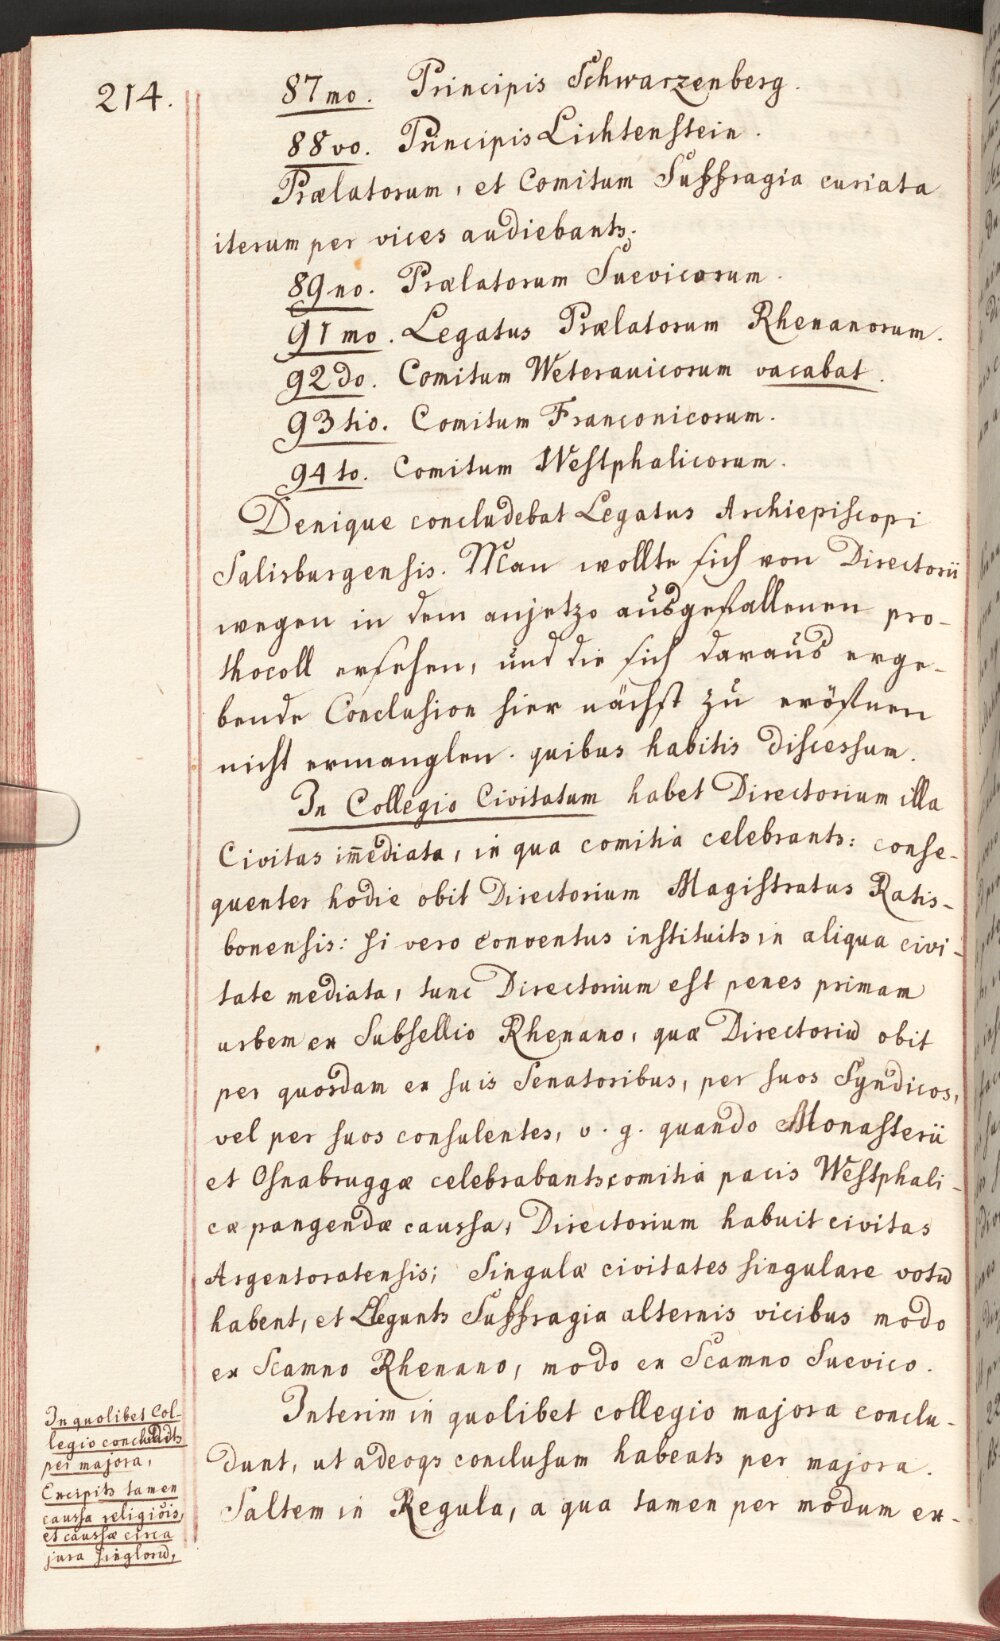 214.
87mo. Principis Schwarzenberg.
88vo. Principis Lichtenstein.
Prælatorum, et Comitum Suffragia curiata
iterum per vices audiebantꝫ.
89no. Prælatorum Suevicorum.
91mo. Legatus Prælatorum Rhenanorum.
92do. Comitum Weteravicorum vacabat.
93tio. Comitum Franconicorum.
94to. Comitum Westphalicorum.
Denique concludebat Legatus Archiepiscopi
Salisburgensis. Man wollte sich von Directorii
wegen in dem anjetzo ausgefallenen pro-
thocoll ersehen, und die sich daraus erge-
bende Conclusion hier nächst zu eröffnen
nicht ermanglen. quibus habitis discessum.
In Collegio Civitatum habet Directorium illa
Civitas im̄ediata, in qua comitia celebrantꝫ: conse-
quenter hodie obit Directorium Magistratus Ratis-
bonensis: si vero conventus instituitꝫ in aliqua civi-
tate mediata, tunc Directorium est penes primam
urbem ex Subsellio Rhenano, quæ Directoriū obit
per quosdam ex suis Senatoribus, per suos Syndicos,
vel per suos consulentes, v. g. quando Monasterii
et Osnabruggæ celebrabantꝫ comitia pacis Westphali-
cæ pangendæ caussa, Directorium habuit civitas
Argentoratensis; Singulæ civitates singulare votū
habent, et Leguntꝫ Suffragia alternis vicibus modo
ex Scamno Rhenano, modo ex Scamno Suevico.
Interim in quolibet collegio majora conclu-
dunt, ut adeoqꝫ conclusum habeatꝫ per majora.
Saltem in Regula, a qua tamen per modum ex-
In quolibet Col-
legio concluditꝫ
per majora,
Excipitꝫ tamen
caussa religiōis,
et caussæ circa
jura singlorū,